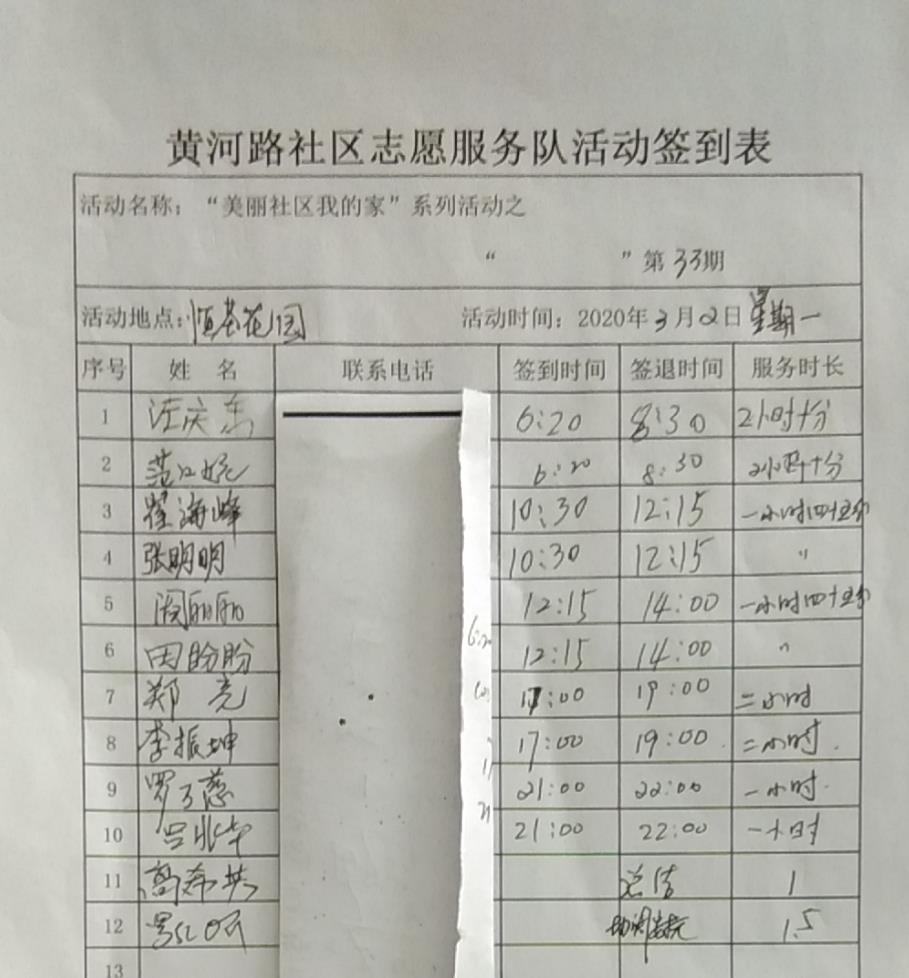 黄河路社区志愿服务队活动签到表
活动名称：“美丽社区我的家”系列活动之
“ ”第33期
活动地点：恒基花园 活动时间：2020年3月2日星期一
序号 姓名 联系电话 签到时间 签退时间 服务时长
1 庆 6:20 8:30 2小时十分
2 6:20 8:30 2小时十分
3 崔海峰 10:30 12:15 一小时四十五分
4 张明明 10:30 12:15 〃
5 周丽丽 12:15 14:00 一小时四十五分
6 田盼盼 12:15 14:00 〃
7 郑亮 17:00 19:00 二小时
8 李振坤 17:00 19:00 二小时.
9 罗 慈 21:00 22:00 一小时.
10 吕 21:00 22:00 一小时
11 高 总结 1
12 1.5
13